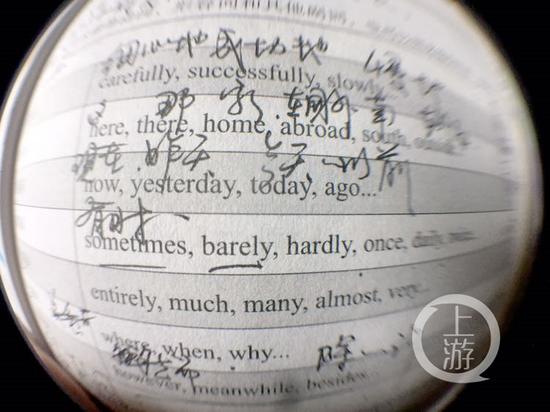 细心地 成功地
carefully, successfully, slowly...
那 家
here, there, home, abroad, south, outside
现在 昨天 今天 以前
now, yesterday, today, ago...
有时
sometimes, barely, hardly, once, daily, twice...
entirely, much, many, almost, very...
where, when, why...
however, meanwhile, besides...
上游